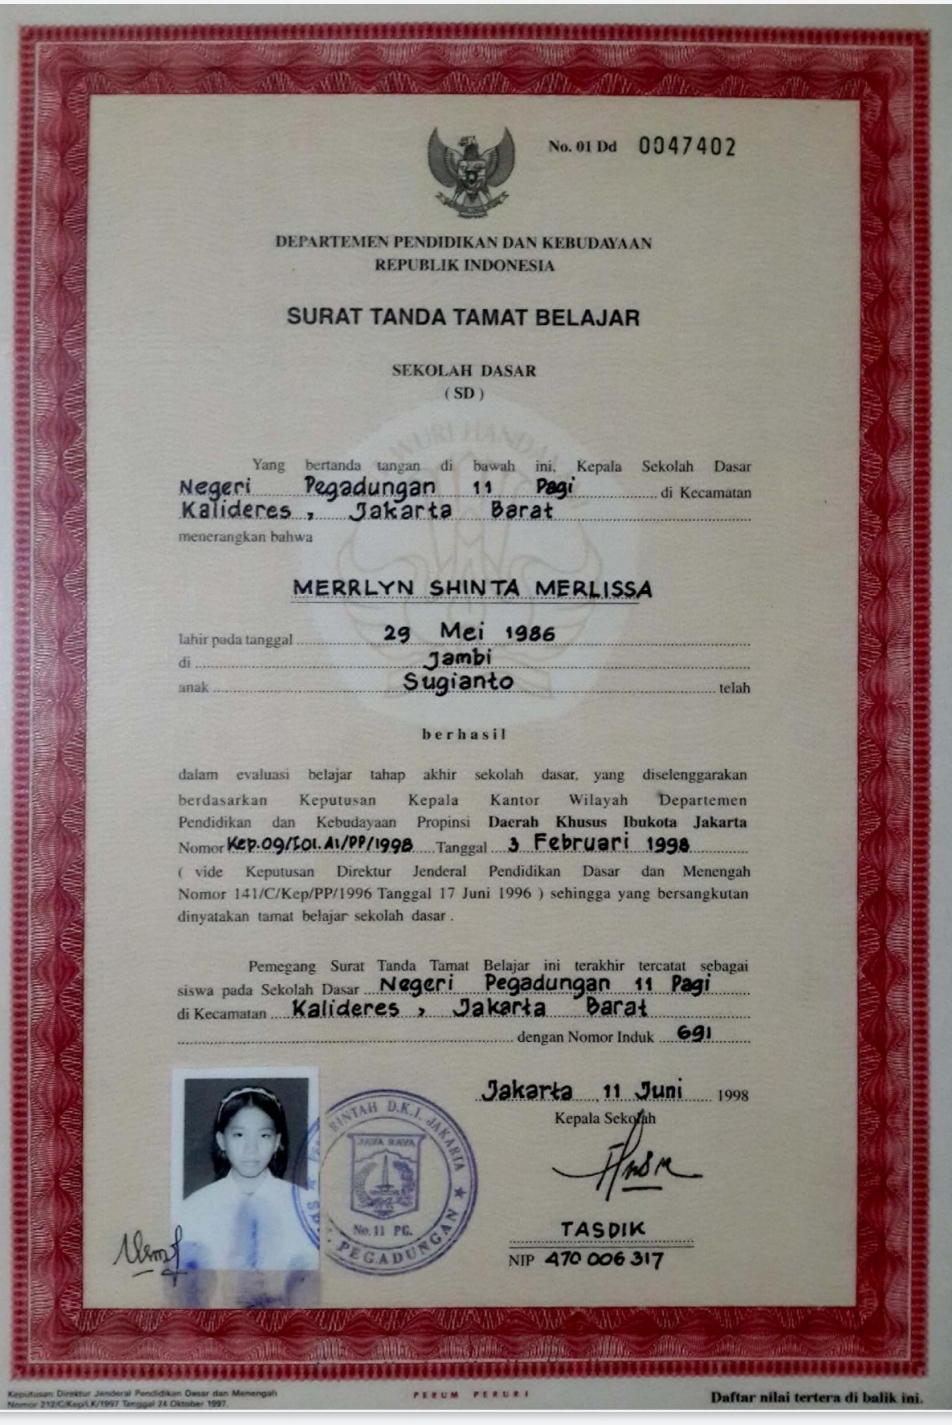 No. 01 Dd 0047402
DEPARTEMEN PENDIDIKAN DAN KEBUDAYAAN
REPUBLIK INDONESIA
SURAT TANDA TAMAT BELAJAR
SEKOLAH DASAR
( SD )
Yang bertanda tangan di bawah ini, Kepala Sekolah Dasar
Negeri Pegadungan 11 Pagi di Kecamatan
Kalideres, Jakarta Barat
menerangkan bahwa
MERRLYN SHINTA MERLISSA
lahir pada tanggal 29 Mei 1986
di Jambi
anak Sugianto telah
berhasil
dalam evaluasi belajar tahap akhir sekolah dasar, yang diselenggarakan
berdasarkan Keputusan Kepala Kantor Wilayah Departemen
Pendidikan dan Kebudayaan Propinsi Daerah Khusus Ibukota Jakarta
Nomor Kep.09/I01.A1/PP/1998 Tanggal 3 Februari 1998
( vide Keputusan Direktur Jenderal Pendidikan Dasar dan Menengah
Nomor 141/C/Kep/PP/1996 Tanggal 17 Juni 1996 ) sehingga yang bersangkutan
dinyatakan tamat belajar sekolah dasar .
Pemegang Surat Tanda Tamat Belajar ini terakhir tercatat sebagai
siswa pada Sekolah Dasar Negeri Pegadungan 11 Pagi
di Kecamatan Kalideres, Jakarta Barat
dengan Nomor Induk 691
Jakarta, 11 Juni 1998
Kepala Sekolah
D.K.I. JAKARTA
JAYA RAYA
No.11 PG.
PEGADUNGAN
TASDIK
NIP 470 006 317
Keputusan Direktur Jenderal Pendidikan Dasar dan Menengah
Nomor 212/C/Kep/LK/1997 Tanggal 24 Oktober 1997.
PERUM PERURI
Daftar nilai tertera di balik ini.